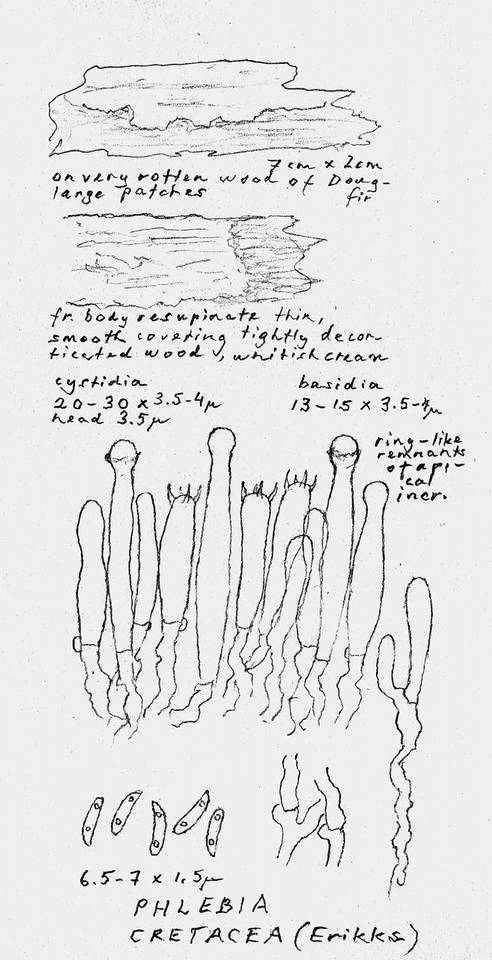 7cm x 2cm
on very rotten wood of Doug-
large patches fir
fr. body resupinate thin,
smooth covering tightly decor
ticated wood, whitish cream
cystidia
20-30 x 3.5-4µ
head 3.5µ
basidia
13-15 x 3.5-4µ
ring-like
remnants
of api-
cal
incr.
6.5-7 x 1.5µ
PHLEBIA
CRETACEA (Erikks)